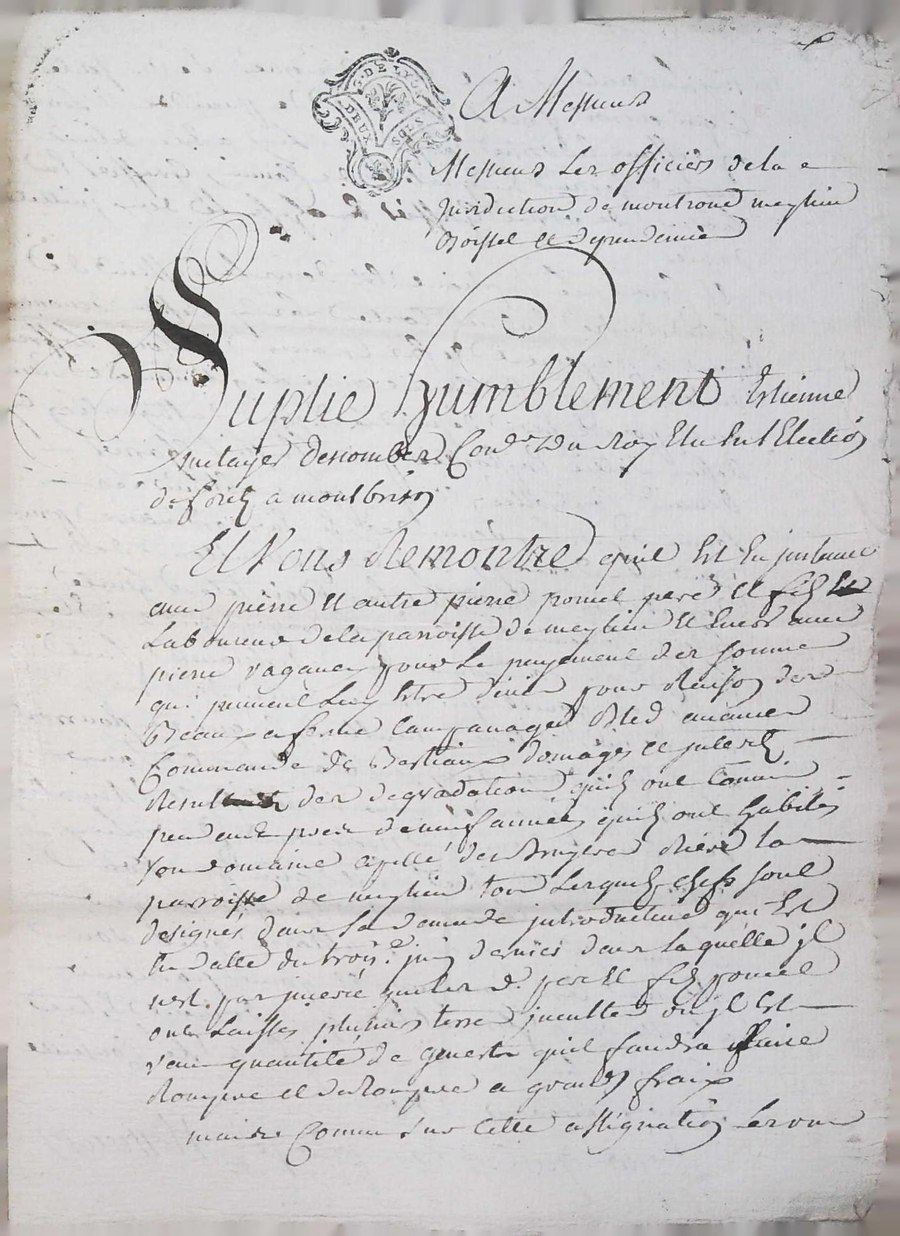 G. DE LYON
DEUX SOLS
A Messieurs
Messieurs Les officiers de la
Jurisdiction de montrond meylieu
Boisset et dependences
Suplie humblement Estienne
De nombre Con.er Du Roy Elu En l'Election
de forez a montbrison
Et Vous Remontre quil Est En instance
avec pierre et autre pierre poncet pere et fils
Laboureurs de la parroisse de meylieu et avec
pierre pour Le payement des sommes
qui peuvent Luy Estre deües pour Raison des
Beaux a ferme Bled
Commande de Bestiaux domages et interets
des degradations quils ont Commis
pendant pres de neuf années quils ont habités
Son domaine apellé des Bruyere Riere la
parroisse de meylieu tous Lesquels chefs sont
designés dans La demande introductive qui Est
En datte du trois.e juin dernier dans laquelle jl
n'est pas que les d. pere et fils poncet
ont Laissés plusieurs terre inculttes ou jl Est
venu quantité de genest quil faudra faire
Rompre et deRompre a grands fraix
Comme sur cette assignation Les